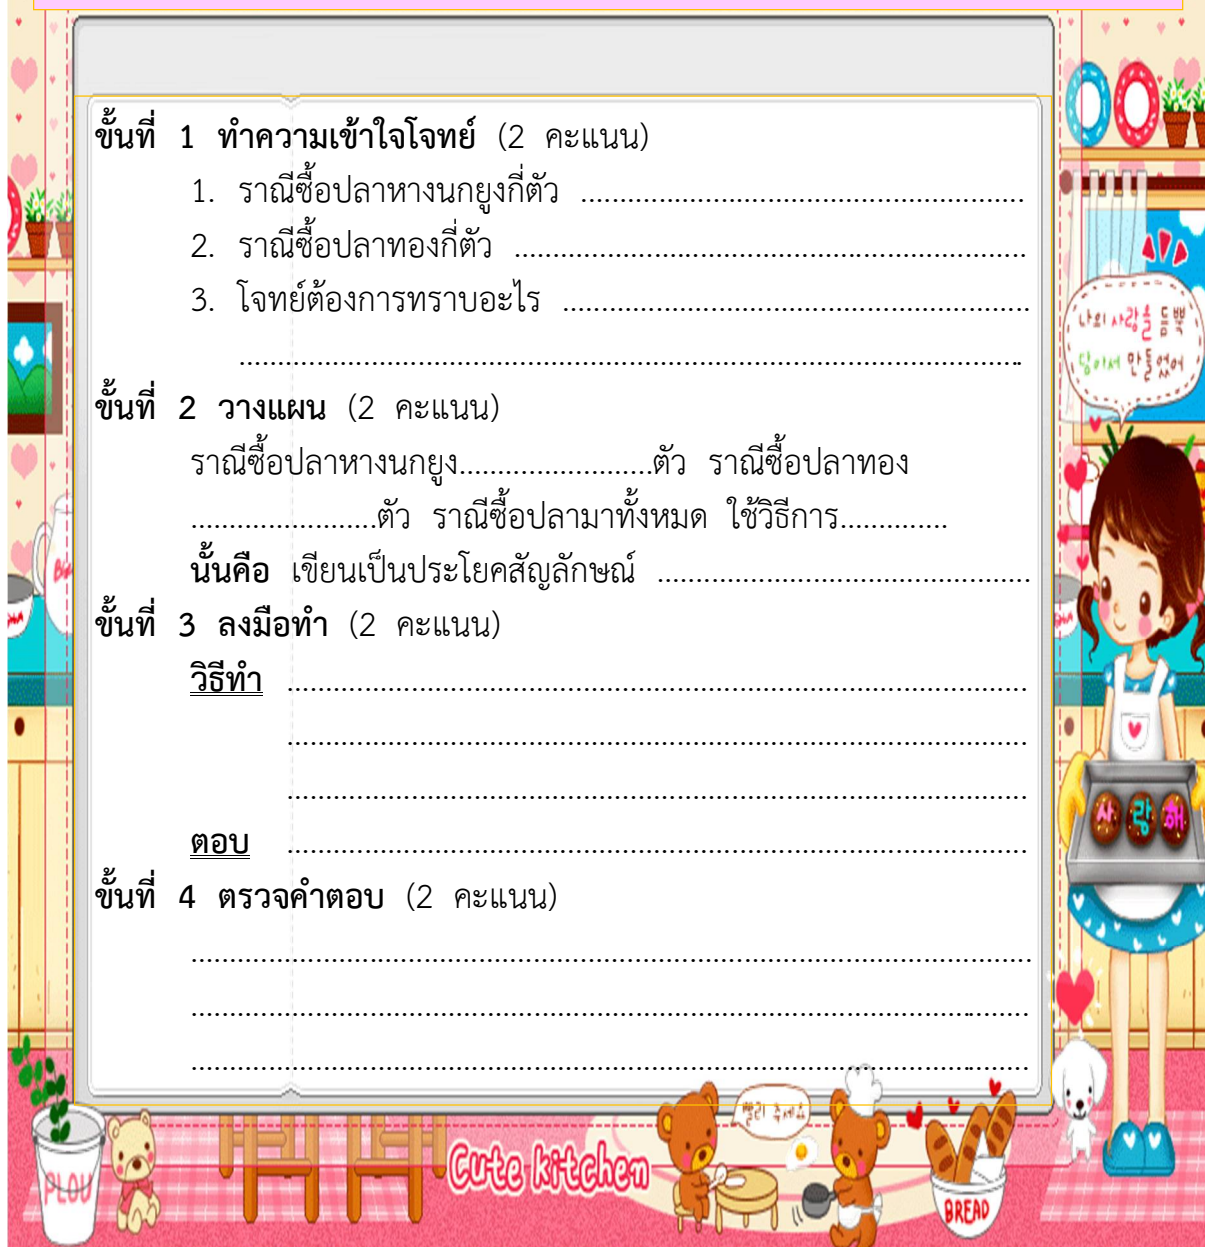 ขั้นที่ 1 ทำความเข้าใจโจทย์ (2 คะแนน)
1. ราณีซื้อปลาหางนกยูงกี่ตัว ..........................................................
2. ราณีซื้อปลาทองกี่ตัว ...................................................................
3. โจทย์ต้องการทราบอะไร .............................................................
......................................................................................................
ขั้นที่ 2 วางแผน (2 คะแนน)
ราณีซื้อปลาหางนกยูง.........................ตัว ราณีซื้อปลาทอง
........................ตัว ราณีซื้อปลามาทั้งหมด ใช้วิธีการ..............
นั้นคือ เขียนเป็นประโยคสัญลักษณ์ ................................................
ขั้นที่ 3 ลงมือทำ (2 คะแนน)
วิธีทำ ................................................................................................
................................................................................................
................................................................................................
ตอบ ................................................................................................
ขั้นที่ 4 ตรวจคำตอบ (2 คะแนน)
.............................................................................................................
.............................................................................................................
.............................................................................................................
나의 사랑을 듬뿍
담아서 만들었어
사랑해
빨리 주세요
Cute kitchen
PLOU
BREAD